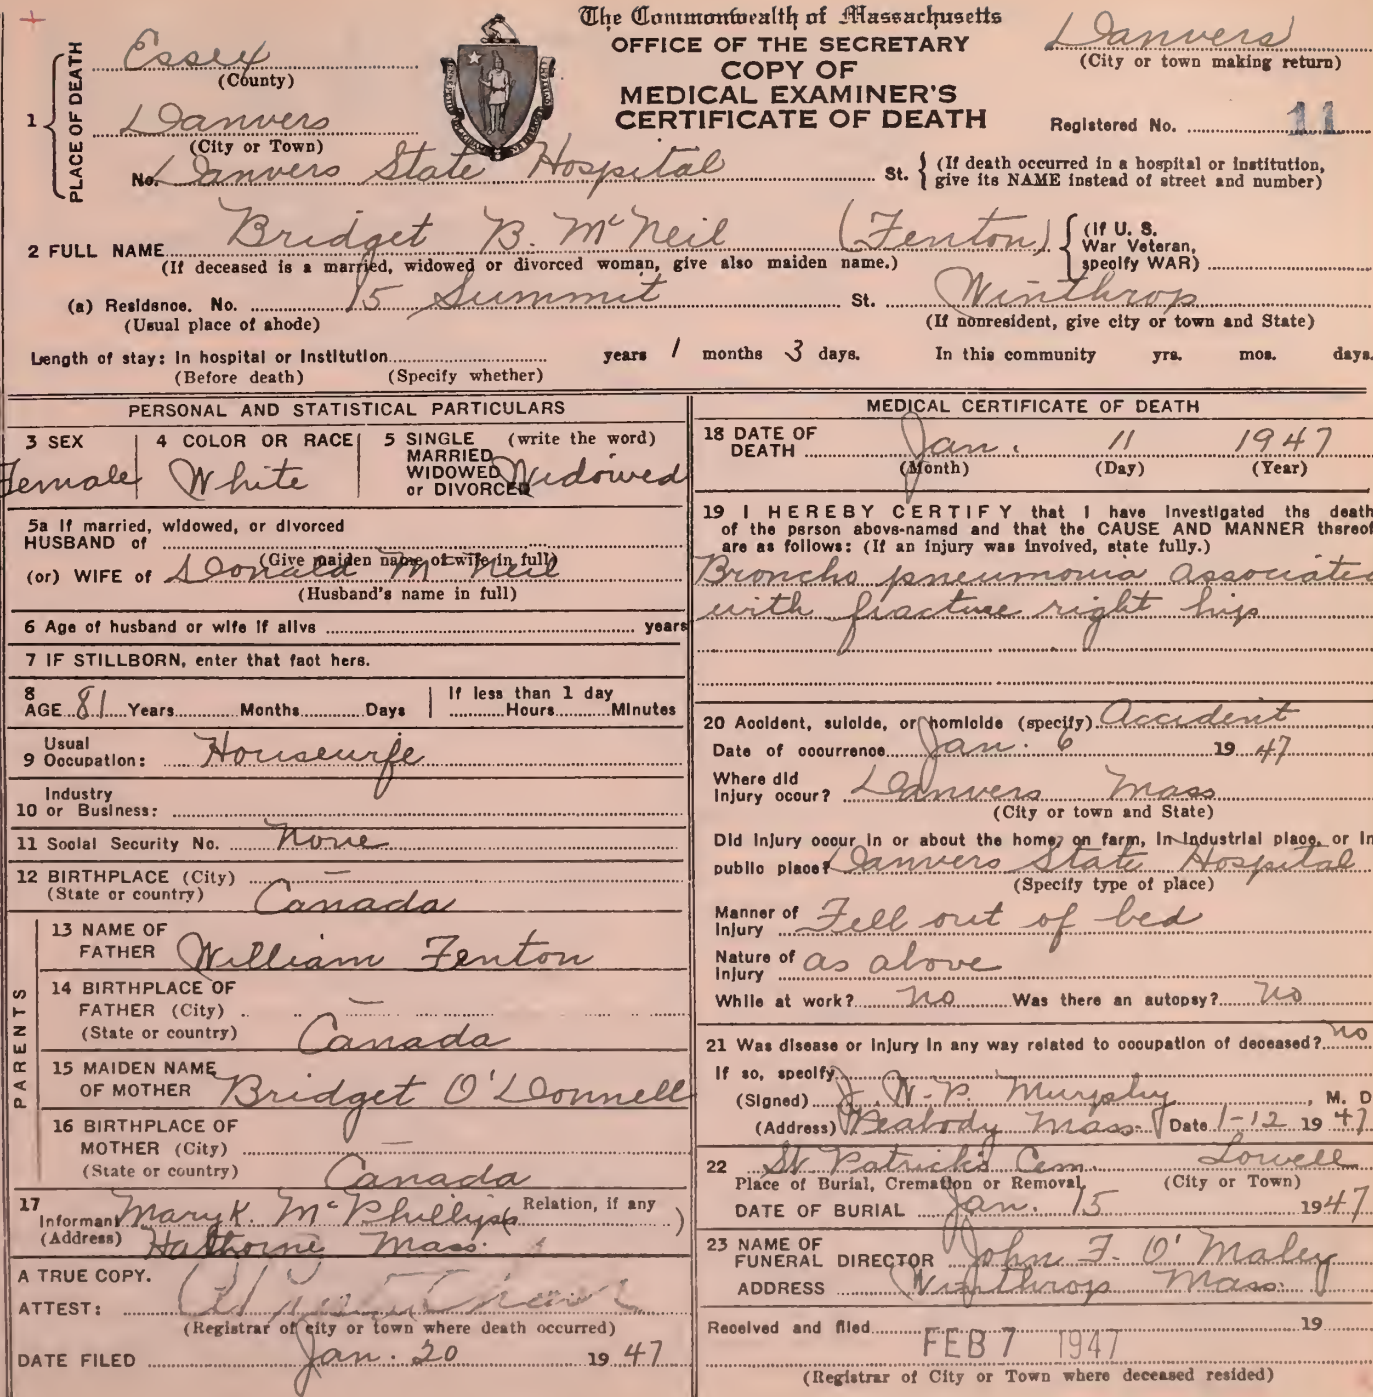 The Commonwealth of Massachusetts
OFFICE OF THE SECRETARY
COPY OF
MEDICAL EXAMINER'S
CERTIFICATE OF DEATH
Danvers
(City or town making return)
Registered No. 11
1 PLACE OF DEATH
Essex
(County)
Danvers
(City or Town)
No. Danvers State Hospital St. (If death occurred in a hospital or institution,
give its NAME instead of street and number)
2 FULL NAME Bridget B. McNeil (Fenton)
(If deceased is a married, widowed or divorced woman, give also maiden name.)
(If U. S.
War Veteran,
specify WAR)
(a) Residence. No. 15 Summit St. Winthrop
(Usual place of abode) (If nonresident, give city or town and State)
Length of stay: In hospital or Institution years 1 months 3 days. In this community yrs. mos. days.
(Before death) (Specify whether)
PERSONAL AND STATISTICAL PARTICULARS
3 SEX
Female
4 COLOR OR RACE
White
5 SINGLE (write the word)
MARRIED
WIDOWED
or DIVORCED
Widowed
5a If married, widowed, or divorced
HUSBAND of
(Give maiden name of wife in full)
(or) WIFE of Donald McNeil
(Husband's name in full)
6 Age of husband or wife if alive years
7 IF STILLBORN, enter that fact here.
8
AGE 81 Years Months Days
If less than 1 day
Hours Minutes
9 Usual
Occupation: Housewife
10 Industry
or Business:
11 Social Security No. None
12 BIRTHPLACE (City) —
(State or country) Canada
PARENTS
13 NAME OF
FATHER William Fenton
14 BIRTHPLACE OF
FATHER (City) —
(State or country) Canada
15 MAIDEN NAME
OF MOTHER Bridget O'Donnell
16 BIRTHPLACE OF
MOTHER (City) —
(State or country) Canada
17
Informant Mary K. McPhillips (Relation, if any )
(Address) Hathorne Mass.
A TRUE COPY.
ATTEST:
(Registrar of city or town where death occurred)
DATE FILED Jan. 20 1947
MEDICAL CERTIFICATE OF DEATH
18 DATE OF
DEATH Jan. 11 1947
(Month) (Day) (Year)
19 I HEREBY CERTIFY that I have investigated the death
of the person above-named and that the CAUSE AND MANNER thereof
are as follows: (If an injury was involved, state fully.)
Broncho pneumonia associated
with fracture right hip
20 Accident, suicide, or homicide (specify) Accident
Date of occurrence Jan. 6 1947
Where did
Injury occur? Danvers Mass
(City or town and State)
Did injury occur in or about the home, on farm, in industrial place, or in
public place? Danvers State Hospital
(Specify type of place)
Manner of
Injury Fell out of bed
Nature of
Injury as above
While at work? no Was there an autopsy? no
21 Was disease or injury in any way related to occupation of deceased? no
If so, specify
(Signed) J. W. P. Murphy, M. D
(Address) Peabody Mass. Date 1-12 1947
22 St. Patrick's Cem. Lowell
Place of Burial, Cremation or Removal. (City or Town)
DATE OF BURIAL Jan. 15 1947
23 NAME OF
FUNERAL DIRECTOR John F. O'Maley
ADDRESS Winthrop Mass.
Received and filed 19
FEB 7 1947
(Registrar of City or Town where deceased resided)